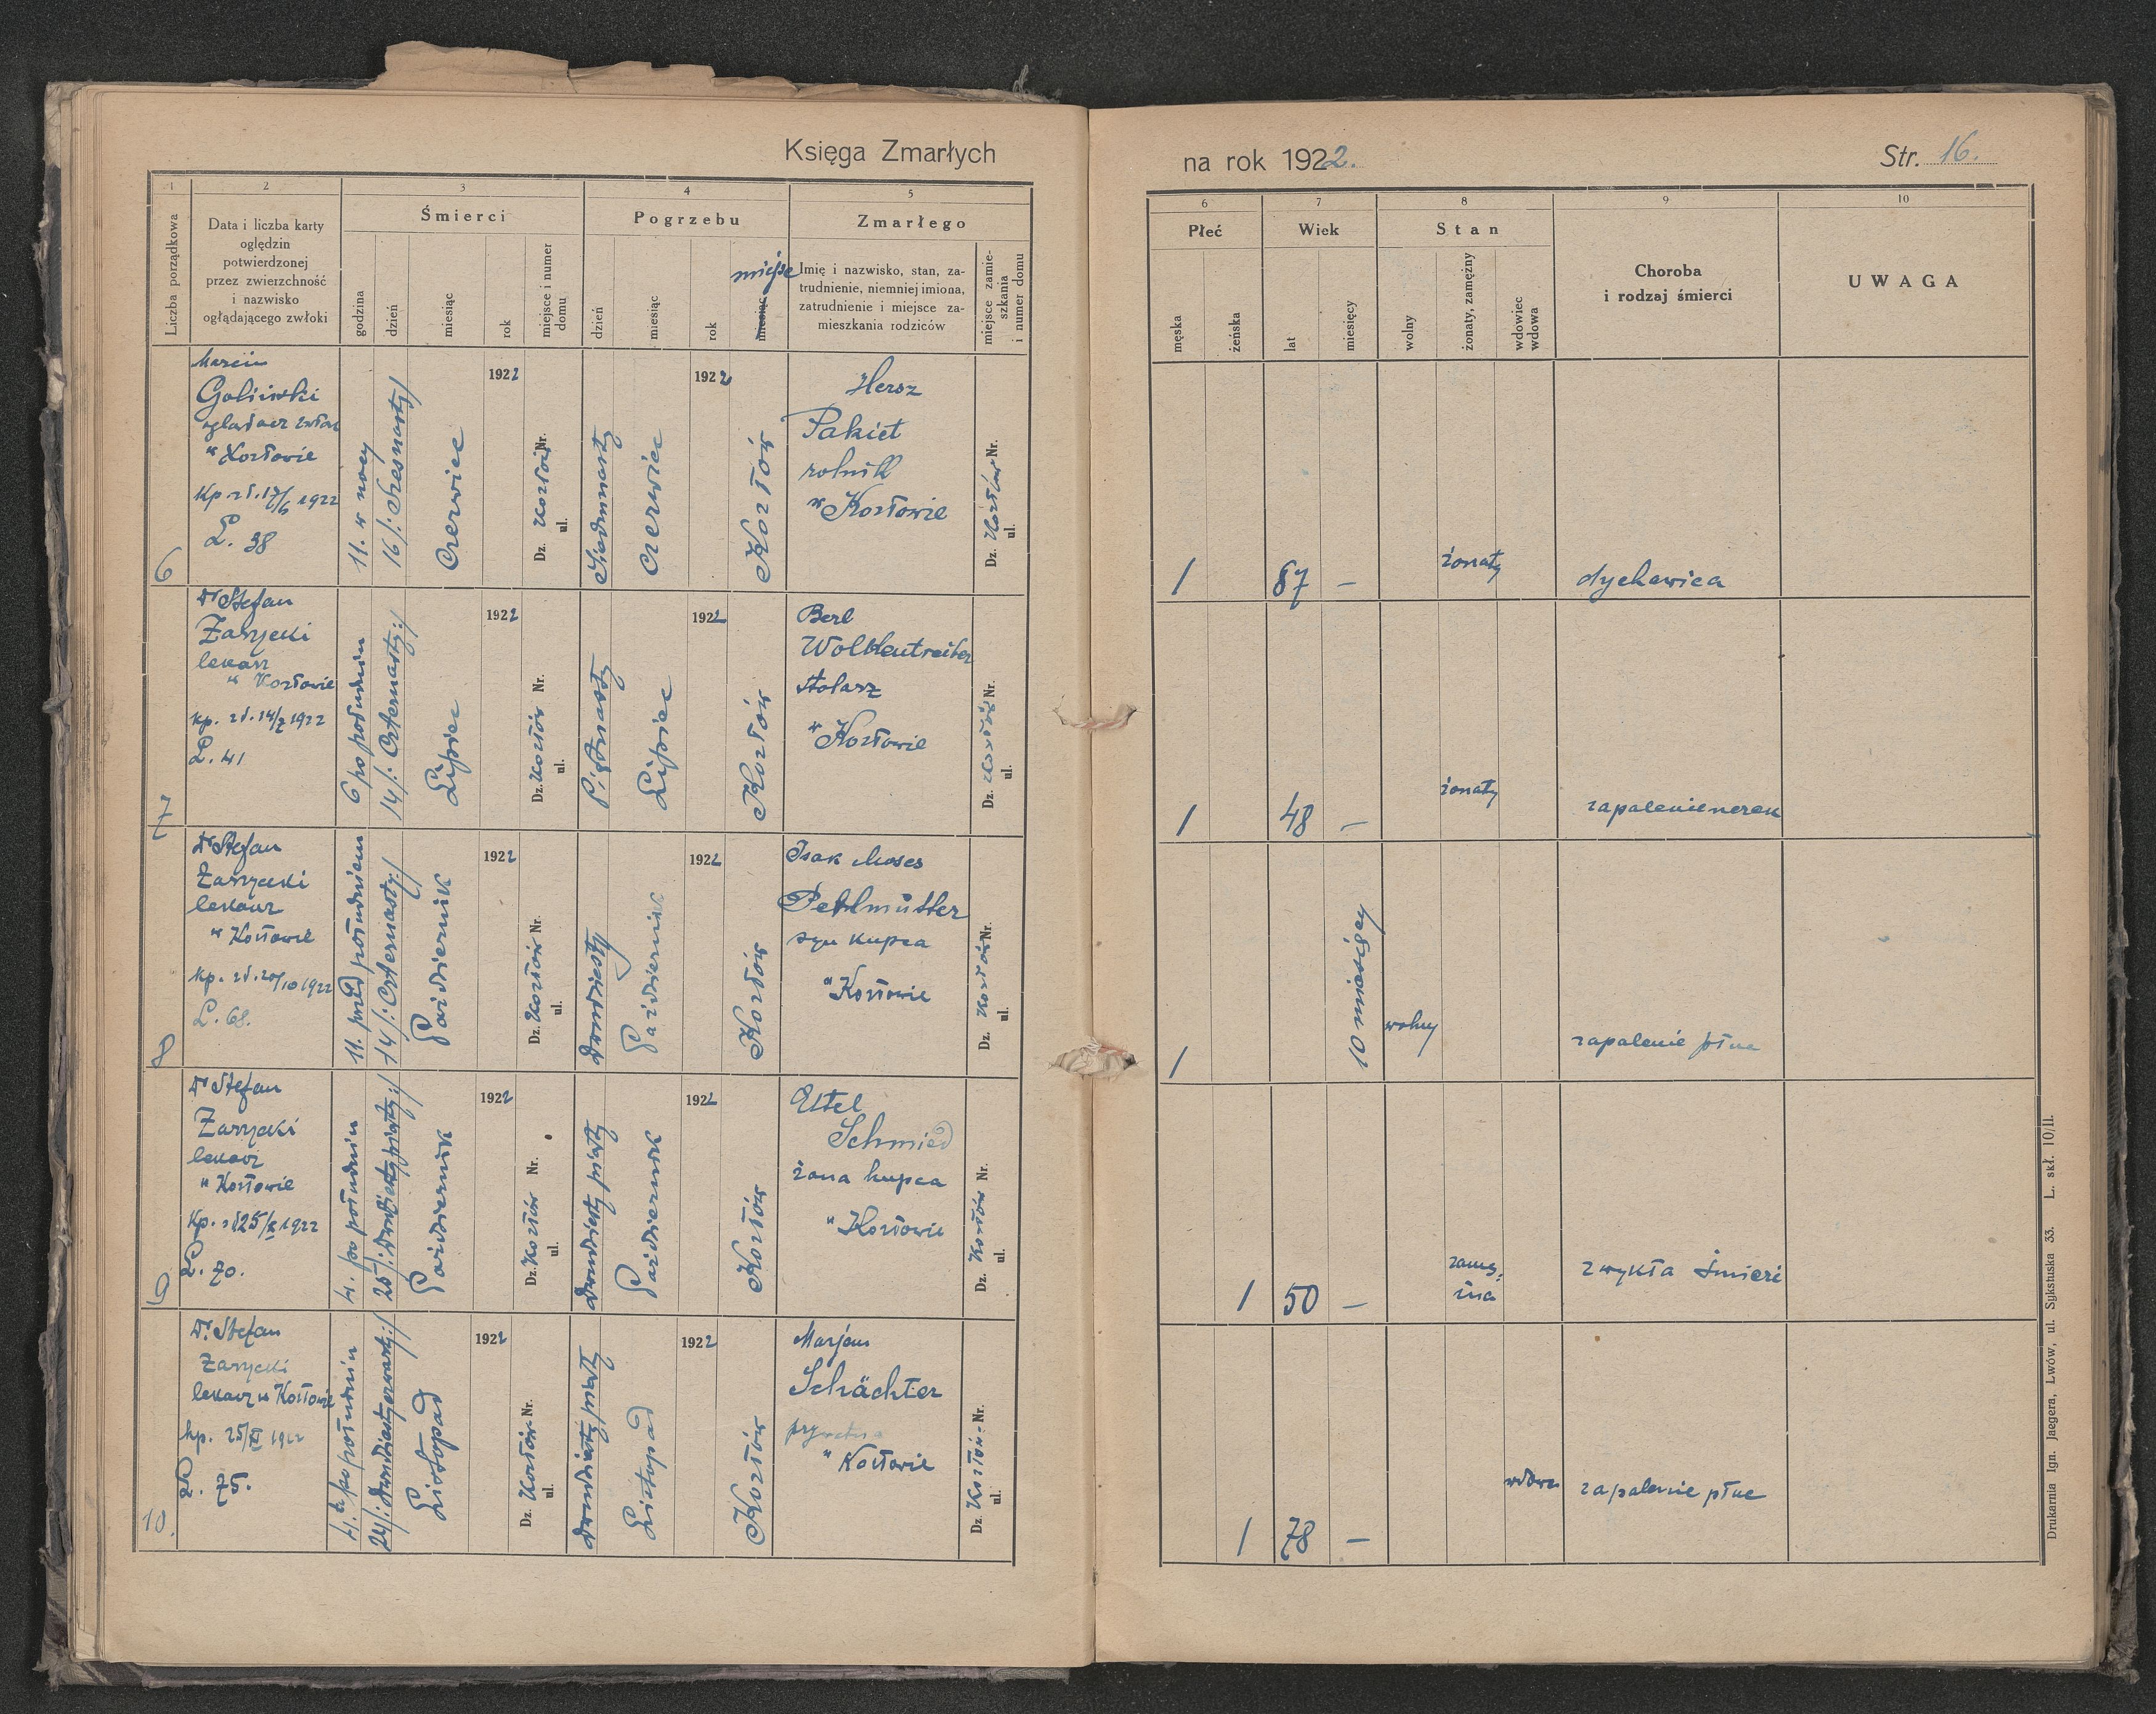 Księga Zmarłych
na rok 1922.
Str. 16.
1
2
3
4
5
6
7
8
9
10
Liczba porządkowa
Data i liczba karty
oględzin
potwierdzonej
przez zwierzchność
i nazwisko
oglądającego zwłoki
Śmierci
godzina
dzień
miesiąc
rok
miejsce i numer
domu
Pogrzebu
dzień
miesiąc
rok
miesiąc
miejsce
Zmarłego
Imię i nazwisko, stan, za-
trudnienie, niemniej imiona,
zatrudnienie i miejsce za-
mieszkania rodziców
miejsce zamie-
szkania
i numer domu
Płeć
męska
żeńska
Wiek
lat
miesięcy
Stan
wolny
żonaty, zamężny
wdowiec
wdowa
Choroba
i rodzaj śmierci
UWAGA
6
Marcin
Goliński
w Kozłowie
Kp. zd. 17/6 1922
L. 38
11. w nocy
16/: szesnasty/
Czerwiec
1922
Dz. Kozłów Nr.
ul.
Siedmnasty
Czerwiec
1922
Kozłów
Hersz
Pakiet
rolnik
w Kozłowie
Dz. Kozłów Nr.
ul.
1
67
—
żonaty
dychawica
7
Dr Stefan
Zarzycki
lekarz
w Kozłowie
Kp. zd. 14/7 1922
L. 41
6 po południu
14/: Czternasty:/
Lipiec
1922
Dz. Kozłów Nr.
ul.
Piętnasty
Lipiec
1922
Kozłów
Berl
Wolkentreiber
stolarz
w Kozłowie
Dz. Kozłów Nr.
ul.
1
48
—
żonaty
zapalenie nerek
8
Dr Stefan
Zarzycki
lekarz
w Kozłowie
Kp. zd. 20/10 1922
L. 68.
11. przed południem
14/: Czternasty:/
Październik
1922
Dz. Kozłów Nr.
ul.
Dwudziesty
Październik
1922
Kozłów
Isak Moses
syn kupca
w Kozłowie
Dz. Kozłów Nr.
ul.
1
10 miesięcy
wolny
zapalenie płuc
9
Dr Stefan
Zarzycki
lekarz
w Kozłowie
Kp. zd 25/X 1922
L. 70.
4. po południu
25/: Dwudziesty piąty:/
Październik
1922
Dz. Kozłów Nr.
ul.
Dwudziesty piąty
Październik
1922
Kozłów
Ettel
Schmied
żona kupca
w Kozłowie
Dz. Kozłów Nr.
ul.
1
50
—
zamę-
żna
zwykła śmierć
10.
Dr. Stefan
Zarzycki
lekarz w Kozłowie
kp. 25/XI 1922
L. 75.
4. po południu
24/: Dwudziesty czwarty:/
Listopad
1922
Dz. Kozłów Nr.
ul.
Dwudziesty piąty
Listopad
1922
Kozłów
Marjem
Schächter
w Kozłowie
Dz. Kozłów Nr.
ul.
1
78
—
wdowa
zapalenie płuc
Drukarnia Ign. Jaegera, Lwów, ul. Sykstuska 33. L. skł. 10/II.